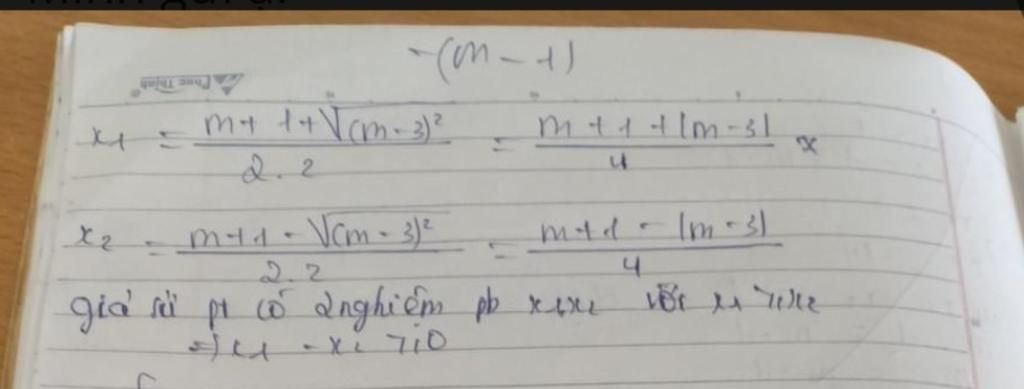 -(m - 1)
Phúc Thịnh
x1 = (m + 1 + √(m - 3)²) / 2.2 = (m + 1 + |m - 3|) / 4 x
x2 = (m + 1 - √(m - 3)²) / 2.2 = (m + 1 - |m - 3|) / 4
giả sử pt có 2 nghiệm pb x1x2 với x1 >, x2
=> x1 - x2 >, 0